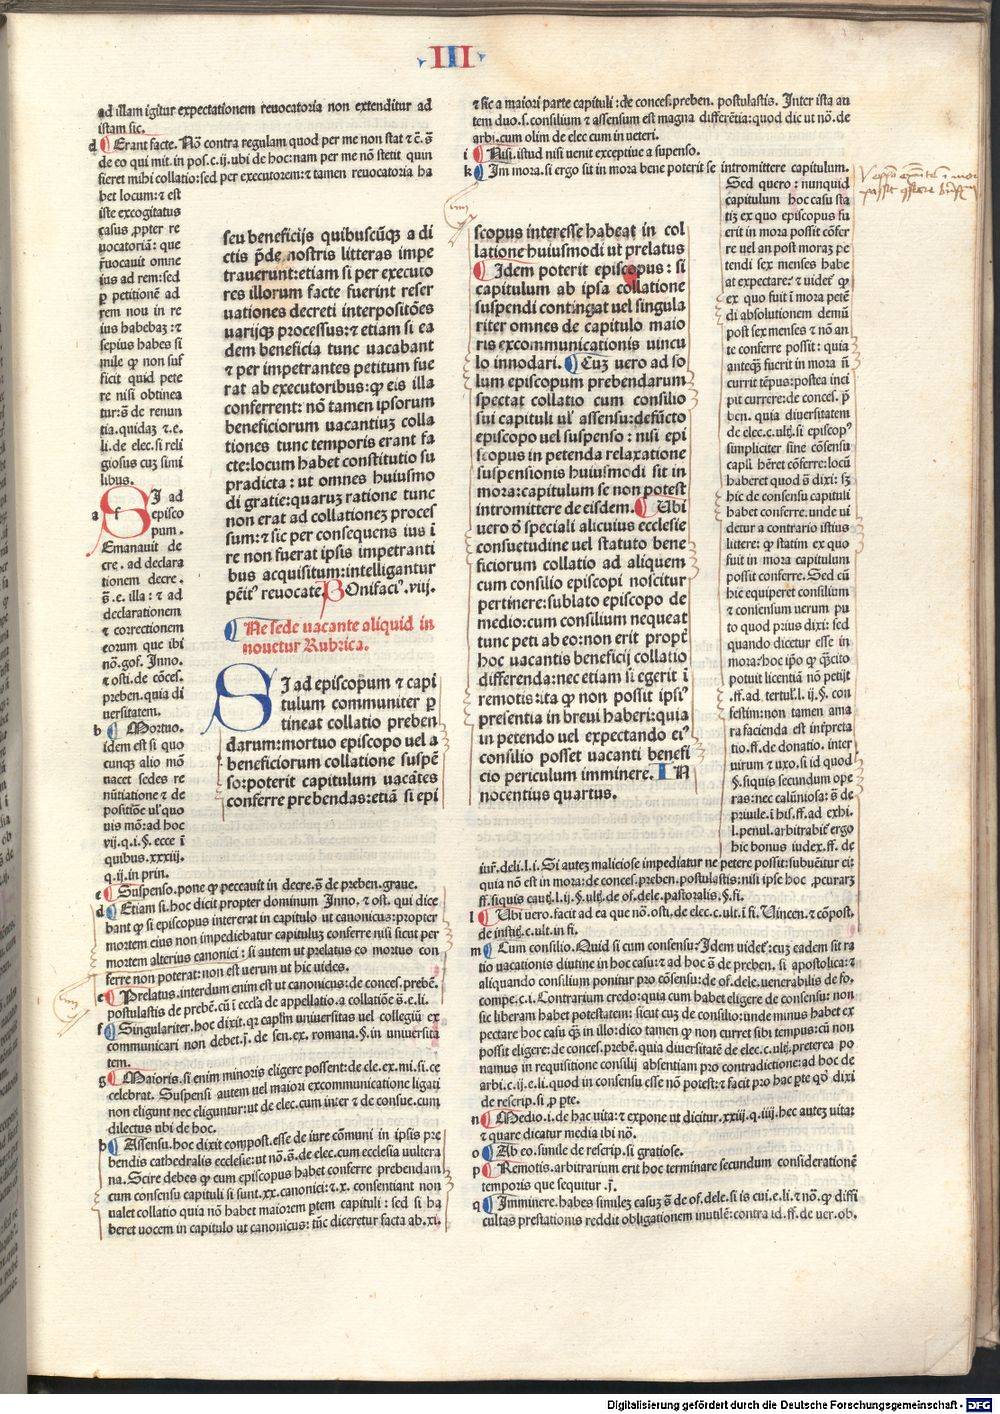 III
ad illam igitur expectationem revocatoria non extenditur ad
istam sic.
d Erant facte. Nō contra regulam quod per me non stat ⁊ c̄. s̄
de eo qui mit. in pos. c. ij. ubi de hoc: nam per me nō stetit quin
fieret mihi collatio: sed per executorem: ⁊ tamen revocatoria ha
bet locum: ⁊ est
iste excogitatus
casus ꝓpter re
uocatoriā: que
r̄uocauit omne
ius ad rem: sed
ꝑ petitionē ad
rem nou in re
ius habebaꝫ: ⁊
sepius habes si
mile ꝙ non suf
ficit quid pete
re nisi obtinea
tur: s̄ de renun
tia. quidaꝫ ⁊. e.
li. de elec. si reli
giosus cuꝫ simi
libus.
a Si ad
episco
pum.
Emanauit de
cre. ad declara
tionem decre.
s̄. e. illa: ⁊ ad
declarationem
⁊ correctionem
eorum que ibi
nō. gof. Inno.
⁊ osti. de cōces.
preben. quia di
uersitatem.
b Mortuo.
idem est si quo
cunqꝫ alio mō
uacet sedes re
nūtiatione ⁊ de
positiōe ul' quo
uis mō: ad hoc
vij. q. i. §. ecce ī
quibus. xxxiij.
q. ij. in prin.
c Suspenso. pone ꝙ peccauit in decre. s̄ de preben. graue.
d Etiam si. hoc dicit propter dominum Inno. ⁊ ost. qui dice
bant ꝙ si episcopus intererat in capitulo ut canonicus: propter
mortem eius non impediebatur capituluꝫ conferre nisi sicut per
mortem alterius canonici: si autem ut prelatus eo mortuo con
ferre non poterat: non est uerum ut hic uides.
e Prelatus. interdum enim est ut canonicus: de conces. prebē.
postulastis de prebē. cū ī eccl'a de appellatio. a collatiōe s̄. e. li.
f Singulariter. hoc dixit. qꝛ capl'm uniuersitas uel collegiū ex
communicari non debet. j. de sen. ex. romana. §. in uniuersita
tem.
g Maioris. si enim minoris eligere possent: de ele. ex. mi. si. ce
celebrat. Suspensi autem uel maiori excommunicatione ligati
non eligunt nec eliguntur: ut de elec. cum inter ⁊ de consue. cum
dilectus ubi de hoc.
h Assensu. hoc dixit compost. esse de iure cōmuni in ipsis pre
bendis cathedralis ecclesie: ut nō. s̄. de elec. cum ecclesia uultera
na. Scire debes ꝙ cum episcopus habet conferre prebendam
cum consensu capituli si sunt. xx. canonici: ⁊. x. consentiant non
ualet collatio quia nō habet maiorem ꝑtem capituli: sed si ha
beret uocem in capitulo ut canonicus: tūc diceretur facta ab. xi.
seu beneficijs quibuscūqꝫ a di
ctis p̄de. nostris litteras impe
trauerunt: etiam si per executo
res illorum facte fuerint reser
uationes decreti interpositōes
uarijqꝫ processus: ⁊ etiam si ea
dem beneficia tunc uacabant
⁊ per impetrantes petitum fue
rat ab executoribus: ꝙ eis illa
conferrent: nō tamen ipsorum
beneficiorum uacantiuꝫ colla
tiones tunc temporis erant fa
cte: locum habet constitutio su
pradicta: ut omnes huiusmo
di gratie: quaruꝫ ratione tunc
non erat ad collationeꝫ proces
sum: ⁊ sic per consequens ius ī
re non fuerat ipsis impetranti
bus acquisitum: intelligantur
pēit' reuocate. Bonifaci'. viij.
Ne sede uacante aliquid in
nouetur Rubrica.
Si ad episcopum ⁊ capi
tulum communiter ꝑ
tineat collatio preben
darum: mortuo episcopo uel a
beneficiorum collatione suspē
so: poterit capitulum uacātes
conferre prebendas: etiā si epi
scopus interesse habeat in col
latione huiusmodi ut prelatus
Idem poterit episcopus: si
capitulum ab ipsa collatione
suspendi contingat uel singula
riter omnes de capitulo maio
ris excommunicationis uincu
lo innodari. Cuꝫ uero ad so
lum episcopum prebendarum
spectat collatio cum consilio
sui capituli ul' assensu: defūcto
episcopo uel suspenso: nisi epi
scopus in petenda relaxatione
suspensionis huiusmodi sit in
mora: capitulum se non potest
intromittere de eisdem. Ubi
uero ō speciali alicuius ecclesie
consuetudine uel statuto bene
ficiorum collatio ad aliquem
cum consilio episcopi noscitur
pertinere: sublato episcopo de
medio: cum consilium nequeat
tunc peti ab eo: non erit propt̄
hoc uacantis beneficij collatio
differenda: nec etiam si egerit ī
remotis: ita ꝙ non possit ipsi'
presentia in breui haberi: quia
in petendo uel expectando ei'
consilio posset uacanti benefi
cio periculum imminere. In
nocentius quartus.
⁊ sic a maiori parte capituli: de conces. preben. postulastis. Inter ista an
tem duo. s. consilium ⁊ assensum est magna differētia: quod dic ut nō. de
arbi. cum olim de elec cum in ueteri.
i Nisi. istud nisi uenit exceptiue a supenso.
k Im mora. si ergo sit in mora bene poterit se intromittere capitulum.
Sed quero: nunquid
capitulum hoc casu sta
tiꝫ ex quo episcopus fu
erit in mora possit cōfer
re uel an post moraꝫ pe
tendi sex menses habe
at expectare: ⁊ uidet̄ ꝙ
ex quo fuit ī mora petē
di absolutionem demū
post sex menses ⁊ nō an
te conferre possit: quia
anteqꝫ fuerit in mora n̄
currit tēpus: postea inci
pit currere: de conces. p̄
ben. quia diuersitatem
de elec. c. ulti. si episcop'
simpliciter sine cōsensu
capl'i hēret cōferre: locū
haberet quod s̄ dixi: sꝫ
hic de consensu capituli
habet conferre. unde ui
detur a contrario istius
littere: ꝙ statim ex quo
fuit in mora capitulum
possit conferre. Sed cū
hic equiperet consilium
⁊ consensum uerum pu
to quod prius dixi: sed
quando dicetur esse in
mora: hoc ip̄o ꝙ q̄cito
potuit licentiā nō petijt
. ff. ad tertul'. l. ij. §. con
festim: non tamen ama
ra facienda est int̄preta
tio. ff. de donatio. inter
uirum ⁊ uxo. si id quod
§. siquis secundum ope
ras: nec calūniosa: s̄ de
priuile. ī his. ff. ad exhi.
l. penul. arbitrabit̄ ergo
hic bonus iudex. ff. de
iur̄. deli. l. i. Si auteꝫ maliciose impediatur ne petere possit: subuētur ei:
quia nō est in mora: de conces. preben. postulastis: nisi ipse hoc ꝓcurarꝫ
ff. siquis cauti. l. ij. §. ulti. de of. dele. pastoralis. §. fi.
l Ubi uero. facit ad ea que nō. osti. de elec. c. ult. ī fi. Uincen. ⁊ cōpost.
de insti. c. ult. in fi.
m Cum consilio. Quid si cum consensu? Idem uidet̄: cuꝫ eadem sit ra
tio uacationis diutine in hoc casu: ⁊ ad hoc s̄ de preben. si apostolica: ⁊
aliquando consilium ponitur pro cōsensu: de of. dele. uenerabilis de fo.
compe. c. i. Contrarium credo: quia cum habet eligere de consensu: non
sic liberam habet potestatem: sicut cuꝫ de consilio: unde minus habet ex
pectare hoc casu qꝫ in illo: dico tamen ꝙ non curret sibi tempus: cū non
possit eligere: de conces. prebē. quia diuersitatē de elec. c. ulti. preterea po
namus in requisitione consilij absentiam pro contradictione: ad hoc de
arbi. c. ij. e. li. quod in consensu esse nō potest: ⁊ facit pro hac ꝑte qō dixi
de rescrip. si ꝓ ꝑte.
n Medio. i. de hac uita: ⁊ expone ut dicitur. xxiij. q. iiij. hec auteꝫ uitaꝫ
⁊ quare dicatur media ibi nō.
o Ab eo. simile de rescrip. si gratiose.
p Remotis. arbitrarium erit hoc terminare secundum considerationē
temporis que sequitur. j.
q Imminere. habes simileꝫ casuꝫ s̄ de of. dele. si is cui. e. li. ⁊ nō. ꝙ diffi
cultas prestationis reddit obligationem inutilē: contra id. ff. de uer. ob.
Digitalisierung gefördert durch die Deutsche Forschungsgemeinschaft - DFG